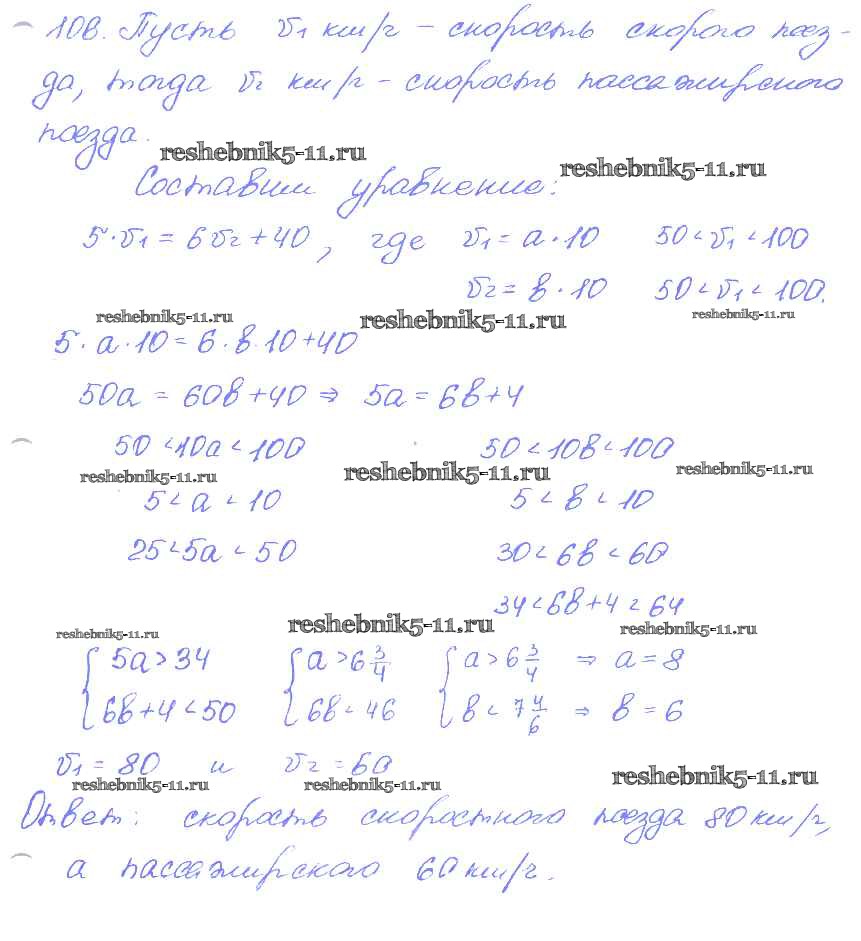 108. Пусть v₁ км/ч – скорость скорого поез-
да, тогда v₂ км/ч – скорость пассажирского
поезда.
reshebnik5-11.ru reshebnik5-11.ru
Составим уравнение:
5·v₁ = 6v₂ + 40, где v₁ = a·10 50 < v₁ < 100
v₂ = b·10 50 < v₁ < 100.
reshebnik5-11.ru reshebnik5-11.ru reshebnik5-11.ru
5·a·10 = 6·b·10 + 40
50a = 60b + 40 ⇒ 5a = 6b + 4
50 < 10a < 100 50 < 10b < 100
reshebnik5-11.ru reshebnik5-11.ru reshebnik5-11.ru
5 < a < 10 5 < b < 10
25 < 5a < 50 30 < 6b < 60
34 < 6b + 4 < 64
reshebnik5-11.ru reshebnik5-11.ru reshebnik5-11.ru
{ 5a > 34 { a > 6 3/4 { a > 6 3/4 ⇒ a = 8
6b + 4 < 50 6b < 46 b < 7 4/6 ⇒ b = 6
v₁ = 80 и v₂ = 60
reshebnik5-11.ru reshebnik5-11.ru reshebnik5-11.ru
Ответ: скорость скоростного поезда 80 км/ч,
а пассажирского 60 км/ч.